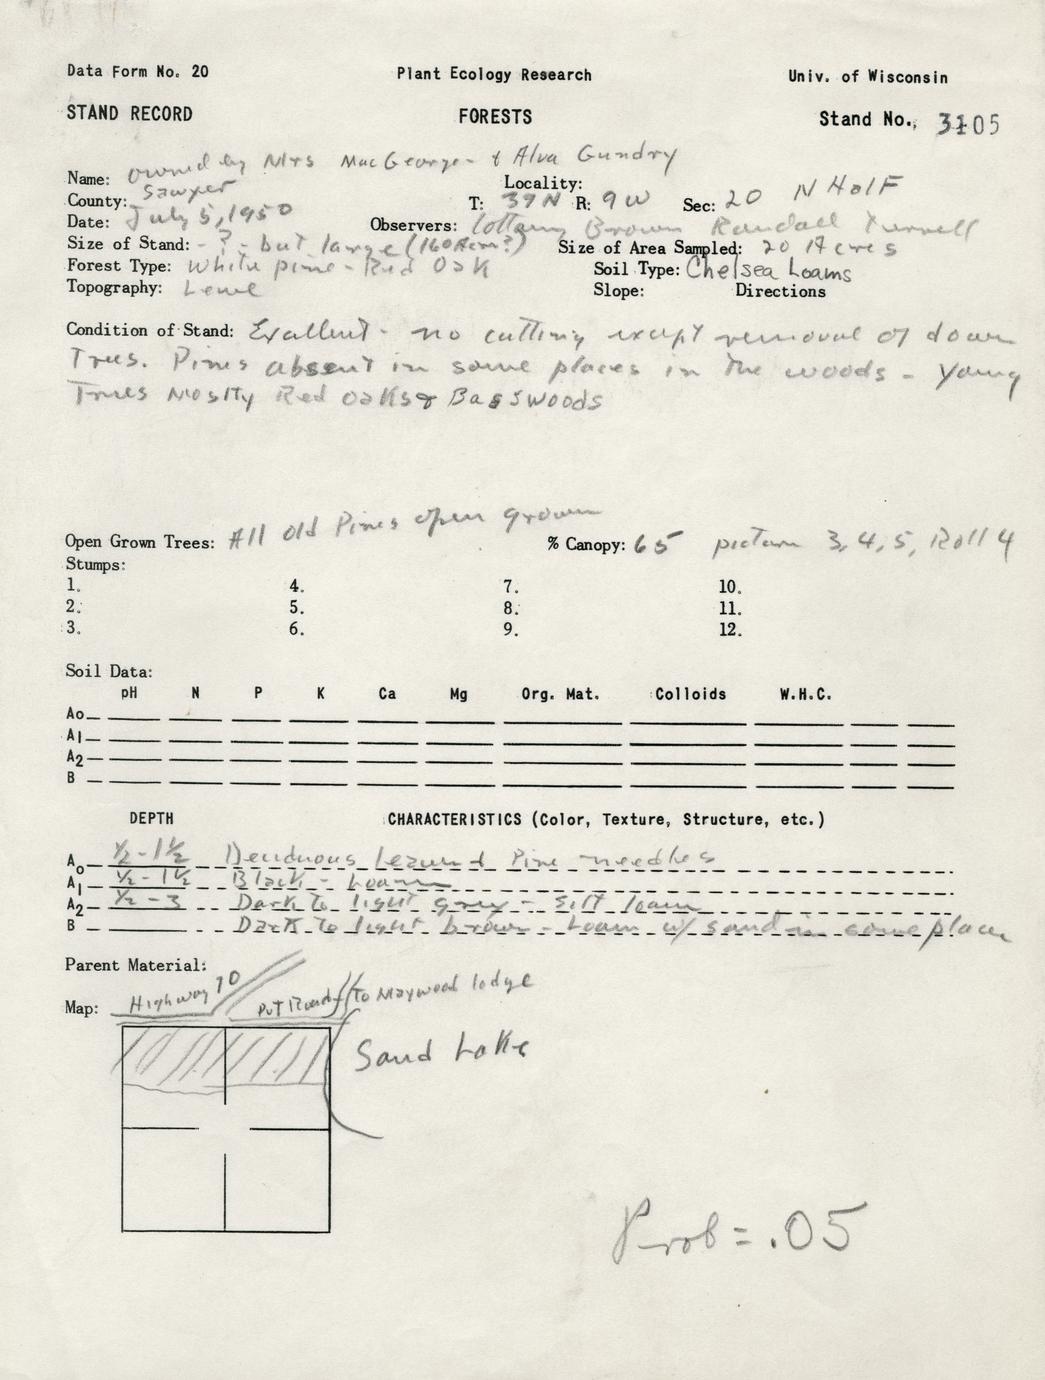 Data Form No. 20 Plant Ecology Research Univ. of Wisconsin
STAND RECORD FORESTS Stand No., 3105
Name: owned by Mrs MacGeorge & Alva Gundry
Locality:
County: Sawyer T: 39N R: 9W Sec: 20 N Half
Date: July 5, 1950 Observers: Cottam Brown Randall
Size of Stand: - ? - but large (160 Acres?) Size of Area Sampled: 20 Acres
Forest Type: White pine - Red Oak Soil Type: Chelsea Loams
Topography: Level Slope: Directions
Condition of Stand: Exallent - no cutting except removal of down
Trees. Pines absent in some places in the woods - Young
Trees Mostly Red Oaks & Basswoods
Open Grown Trees: All old Pines open grown % Canopy: 65 picture 3, 4, 5, Roll 4
Stumps:
1. 4. 7. 10.
2. 5. 8. 11.
3. 6. 9. 12.
Soil Data:
pH N P K Ca Mg Org. Mat. Colloids W.H.C.
Ao
A1
A2
B
DEPTH CHARACTERISTICS (Color, Texture, Structure, etc.)
Ao ½ - 1½ Deciduous leaves & Pine needles
A1 ½ - 1½ Black - Loam
A2 ½ - 3 Dark to light grey - silt loam
B Dark to light brown - Loam w/ sand in some places
Parent Material:
Map: Highway 70 Pvt Road to Maywood lodge
Sand Lake
Prob = .05